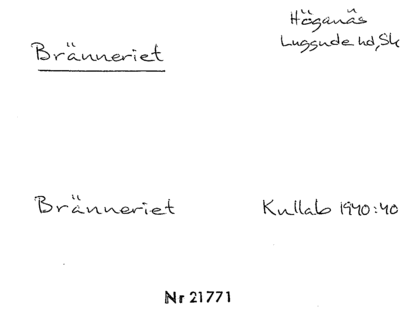 Höganäs
Bränneriet
Luggude hd, Sk
Bränneriet Kullab 1940:40
Nr 21771